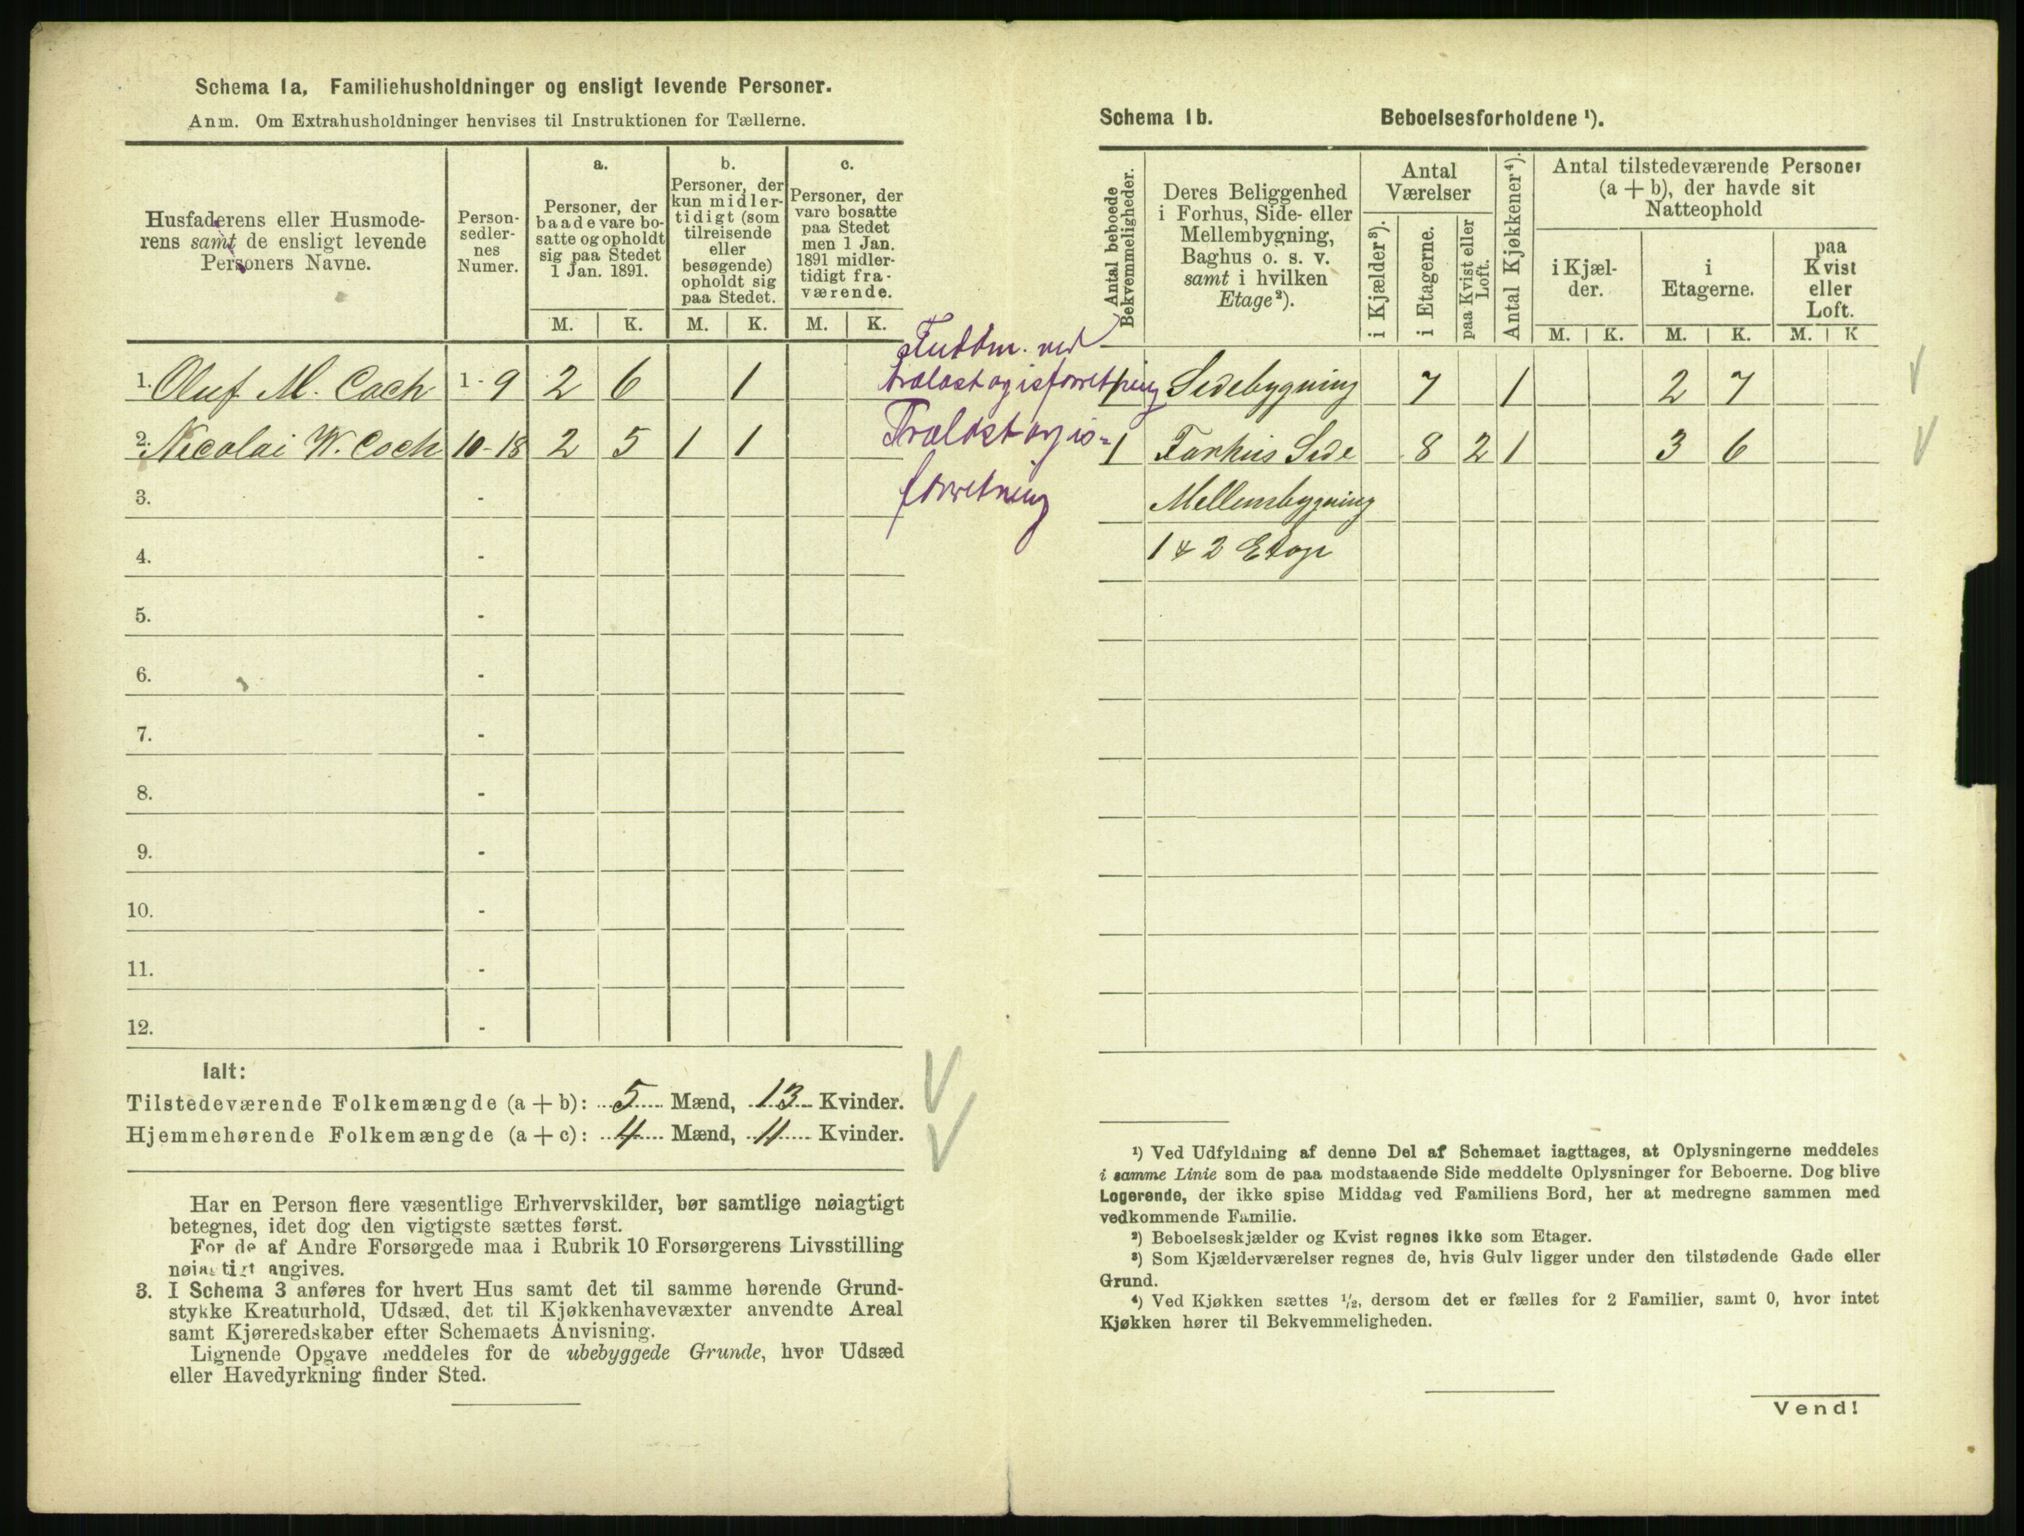 Schema 1a, Familiehusholdninger og ensligt levende Personer.
Anm. Om Extrahusholdninger henvises til Instruktionen for Tællerne.
Husfaderens eller Husmode-
rens samt de ensligt levende
Personers Navne.
Person-
sedler-
nes
Numer.
a.
Personer, der
baade vare bo-
satte og opholdt
sig paa Stedet
1 Jan. 1891.
b.
Personer, der
kun midler-
tidigt (som
tilreisende
eller
besøgende)
opholdt sig
paa Stedet.
c.
Personer, der
vare bosatte
paa Stedet
men 1 Jan.
1891 midler-
tidigt fra-
værende.
M. K. M. K. M. K.
1. Oluf M. Coch 1-9 2 6 1
2. Nicolai W. Coch 10-18 2 5 1 1
3. -
4. -
5. -
6. -
7. -
8. -
9. -
10. -
11. -
12. -
ved
trælast og isforretning
Trælast og is-
forretning
Ialt:
Tilstedeværende Folkemængde (a + b): 5 Mænd, 13 Kvinder.
Hjemmehørende Folkemængde (a + c): 4 Mænd, 11 Kvinder.
Har en Person flere væsentlige Erhvervskilder, bør samtlige nøiagtigt
betegnes, idet dog den vigtigste sættes først.
For de af Andre Forsørgede maa i Rubrik 10 Forsørgerens Livsstilling
nøiagtigt angives.
3. I Schema 3 anføres for hvert Hus samt det til samme hørende Grund-
stykke Kreaturhold, Udsæd, det til Kjøkkenhavevæxter anvendte Areal
samt Kjøreredskaber efter Schemaets Anvisning.
Lignende Opgave meddeles for de ubebyggede Grunde, hvor Udsæd
eller Havedyrkning finder Sted.
Schema 1b. Beboelsesforholdene ¹).
Antal beboede
Bekvemmeligheder.
Deres Beliggenhed
i Forhus, Side- eller
Mellembygning,
Baghus o. s. v.
samt i hvilken
Etage²).
Antal
Værelser
i Kjælder³).
i Etagerne.
paa Kvist eller
Loft.
Antal Kjøkkener⁴).
Antal tilstedeværende Personer
(a + b), der havde sit
Natteophold
i Kjæl-
der.
i
Etagerne.
paa
Kvist
eller
Loft.
M. K. M. K. M. K
1 Sidebygning 7 1 2 7
1 Forhus Side 8 2 1 3 6
Mellembygning
1 & 2 Etage
¹) Ved Udfyldning af denne Del af Schemaet iagttages, at Oplysningerne meddeles
i samme Linie som de paa modstaaende Side meddelte Oplysninger for Beboerne. Dog blive
Logerende, der ikke spise Middag ved Familiens Bord, her at medregne sammen med
vedkommende Familie.
²) Beboelseskjælder og Kvist regnes ikke som Etager.
³) Som Kjælderværelser regnes de, hvis Gulv ligger under den tilstødende Gade eller
Grund.
⁴) Ved Kjøkken sættes ½, dersom det er fælles for 2 Familier, samt 0, hvor intet
Kjøkken hører til Bekvemmeligheden.
Vend!